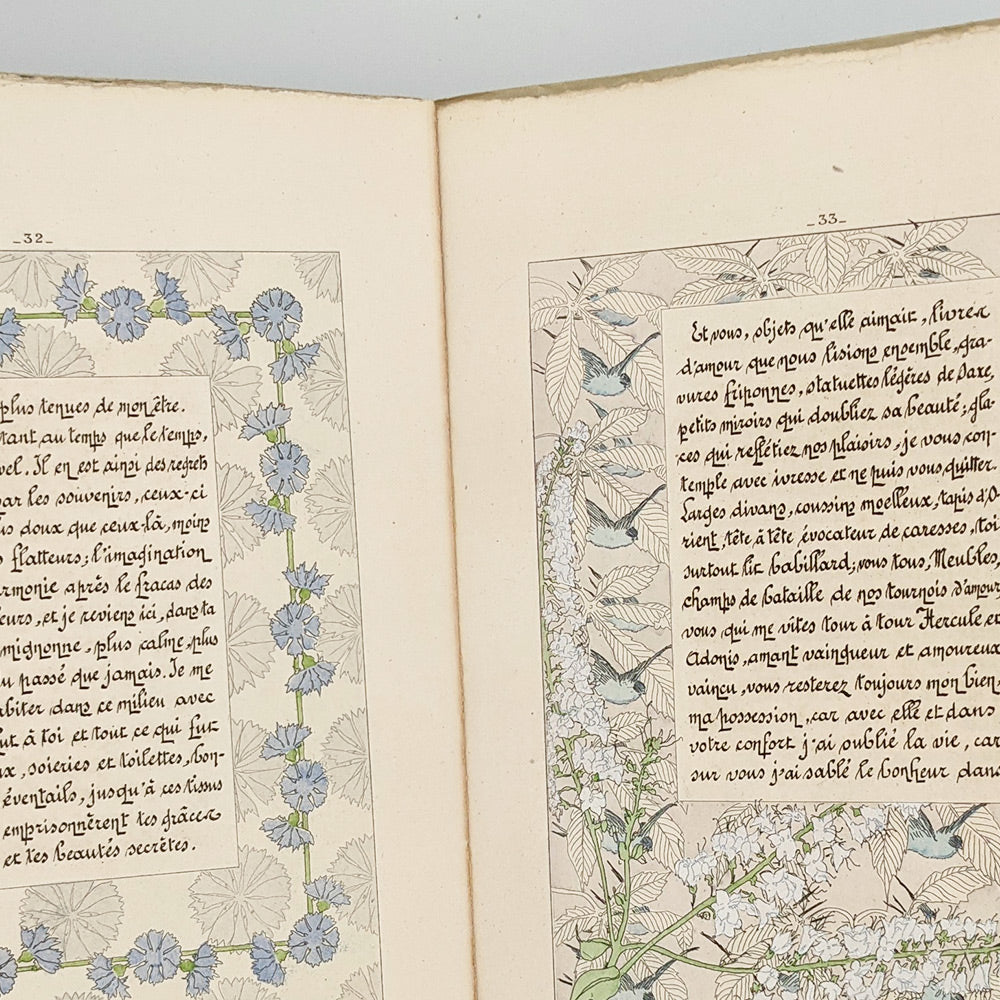 _32_
plus tenues de mon être.
tant au temps que le temps,
vel. Il en est ainsi des regrets
par les souvenirs, ceux-ci
us doux que ceux-là, moins
s flatteurs; l'imagination
armonie après le fracas des
eurs, et je reviens ici, dans ta
mignonne, plus calme, plus
u passé que jamais. Je me
abiter dans ce milieu avec
ut à toi et tout ce qui fut
ux, soieries et toilettes, bon-
éventails, jusqu'à ces tissus
emprisonnèrent tes grâces
et tes beautés secrètes.
_33_
Et vous, objets qu'elle aimait, livres
d'amour que nous lisions ensemble, gra-
vures friponnes, statuettes légères de Saxe,
petits miroirs qui doubliez sa beauté; gla-
ces qui reflétiez nos plaisirs, je vous con-
temple avec ivresse et ne puis vous quitter.
Larges divans, coussins moelleux, tapis d'O-
rient, tête à tête évocateur de caresses, toi
surtout lit babillard; vous tous, Meubles,
champs de bataille de nos tournois d'amour
vous qui me vîtes tour à tour Hercule et
Adonis, amant vainqueur et amoureux
vaincu, vous resterez toujours mon bien,
ma possession, car avec elle et dans
votre confort j'ai oublié la vie, car
sur vous j'ai sablé le bonheur dans